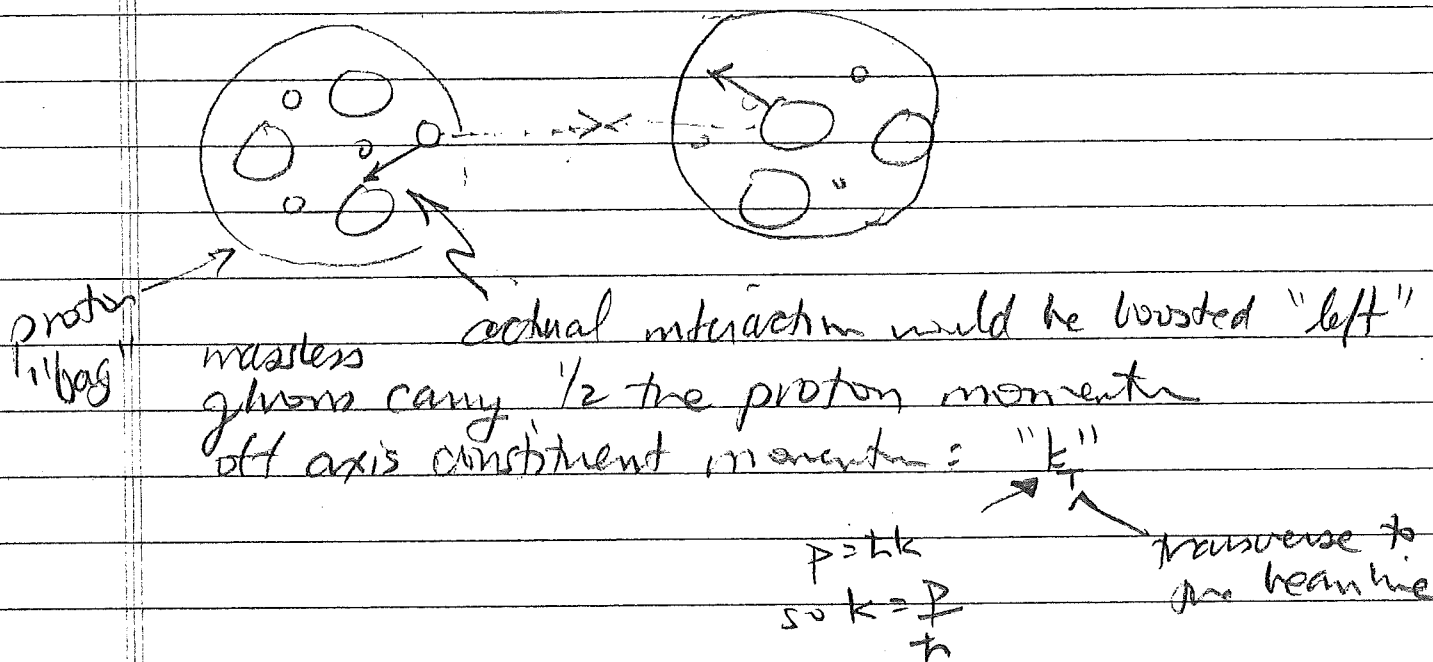 proton
"bag"
actual interaction would be boosted "left"
massless
gluons carry 1/2 the proton momentum
off axis constituent momentum = "k_T"
p=ħk
so k = p/ħ
transverse to
the beamline